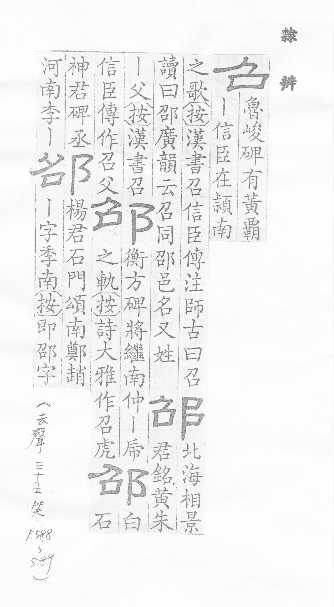 隸辨
召魯峻碑有黃霸
丨信臣在頴南
之歌按漢書召信臣傳注師古曰召
讀曰邵廣韻云召同邵邑名又姓邵北海相景君銘黃朱
丨父按漢書召邵衡方碑將繼南仲丨虎
信臣傳作召父召之軌按詩大雅作召虎邵白石
神君碑丞邵楊君石門頌南鄭趙
河南李丨邵丨字季南按即邵字
(去聲 三十五笑
P.588
~
589)